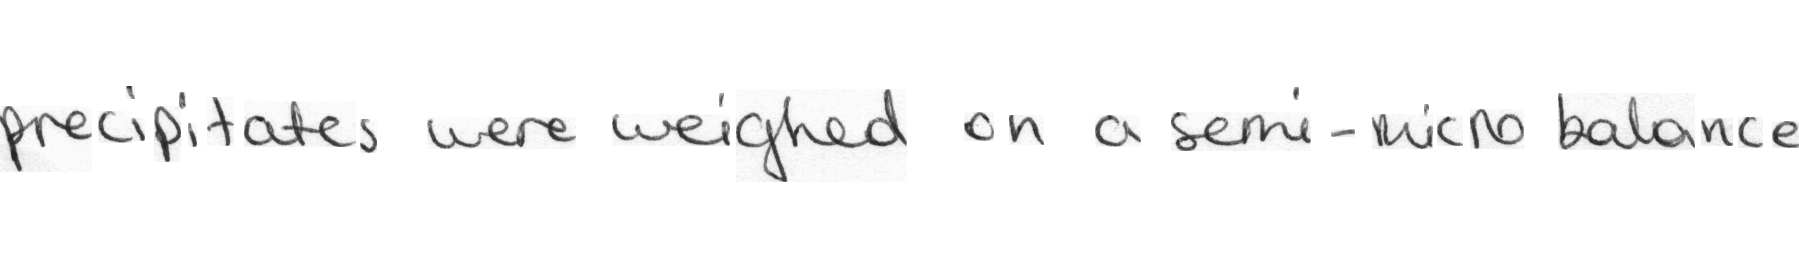 precipitates were weighed on a semi-micro balance